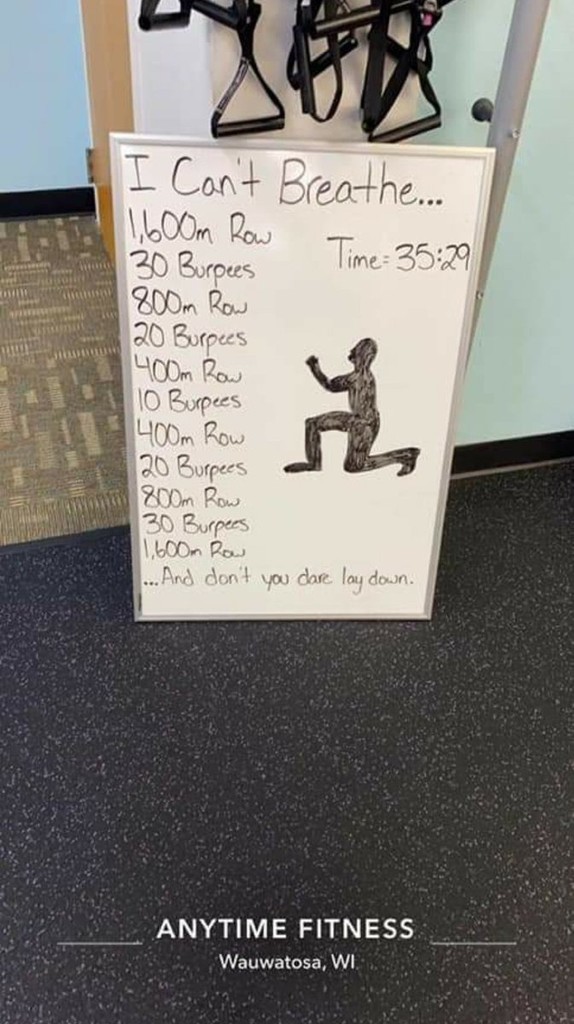 I Can't Breathe...
1,600m Row
Time = 35:29
30 Burpees
800m Row
20 Burpees
400m Row
10 Burpees
400m Row
20 Burpees
800m Row
30 Burpees
1,600m Row
...And don't you dare lay down.
ANYTIME FITNESS
Wauwatosa, WI